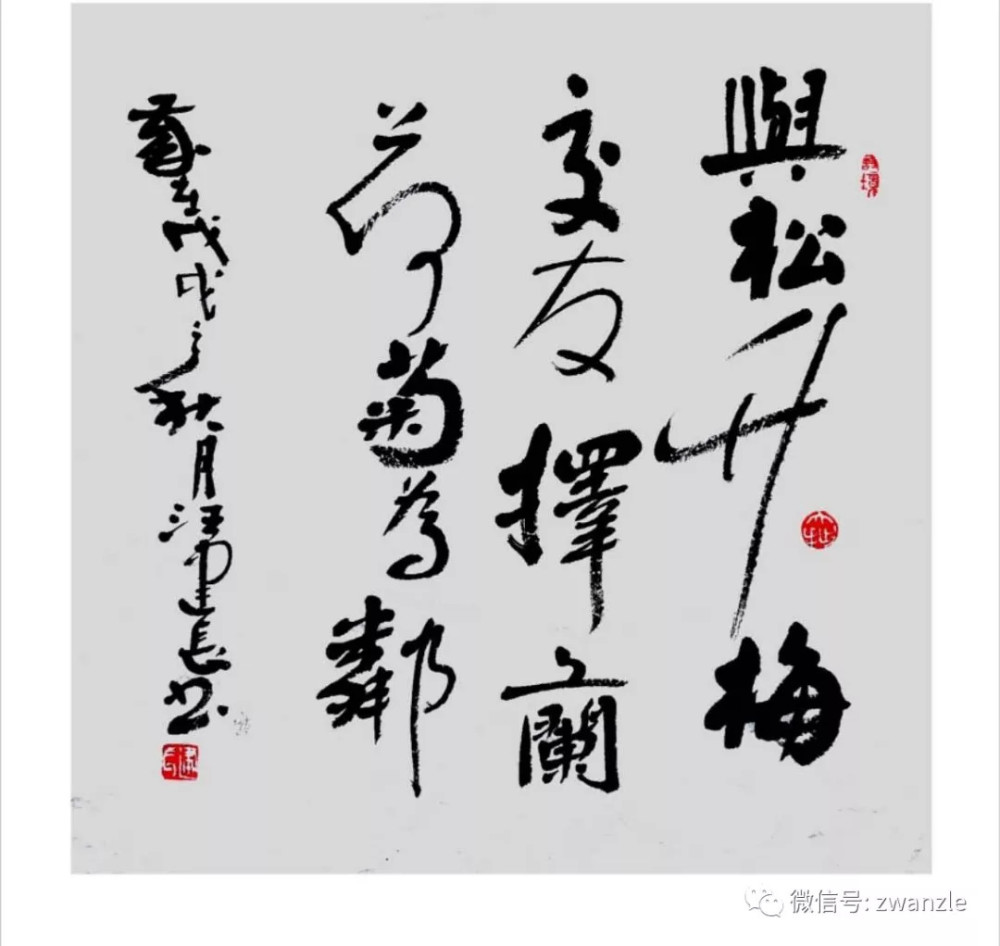 與松竹梅
交友擇蘭
荷菊為鄰
歲在戊戌之秋月汪建長書
微信号: zwanzle